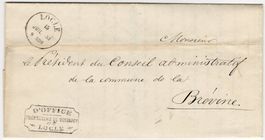 LOCLE
Monsieur
le Président du Conseil administratif
de la commune de la
Brévine.
D'OFFICE
LOCLE